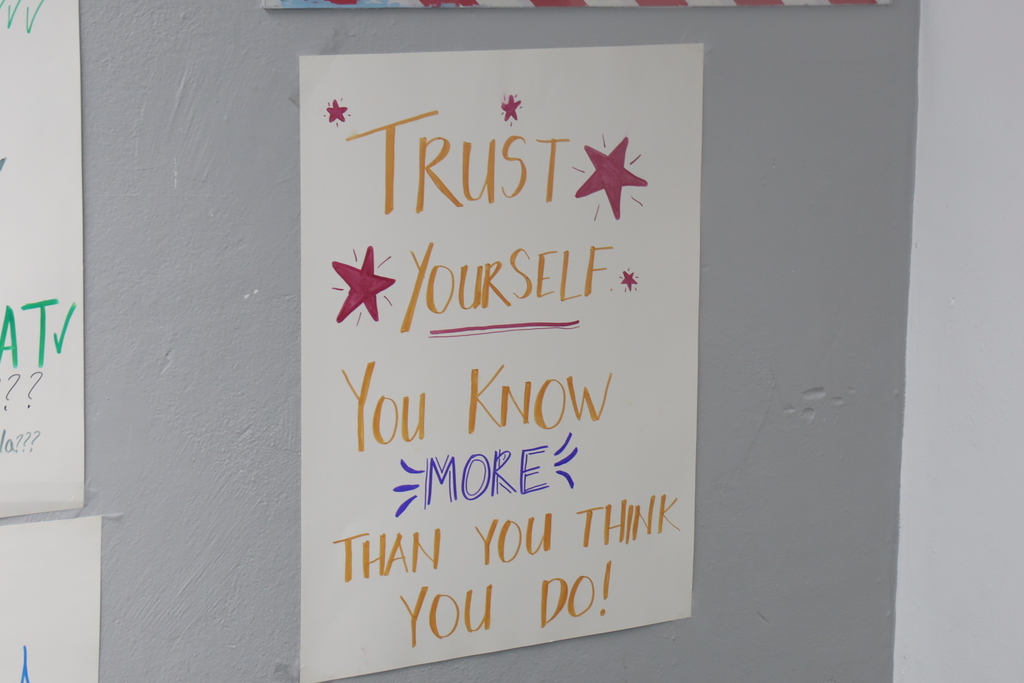 TRUST
YOURSELF.
YOU KNOW
MORE
THAN YOU THINK
YOU DO!
AT
??
???